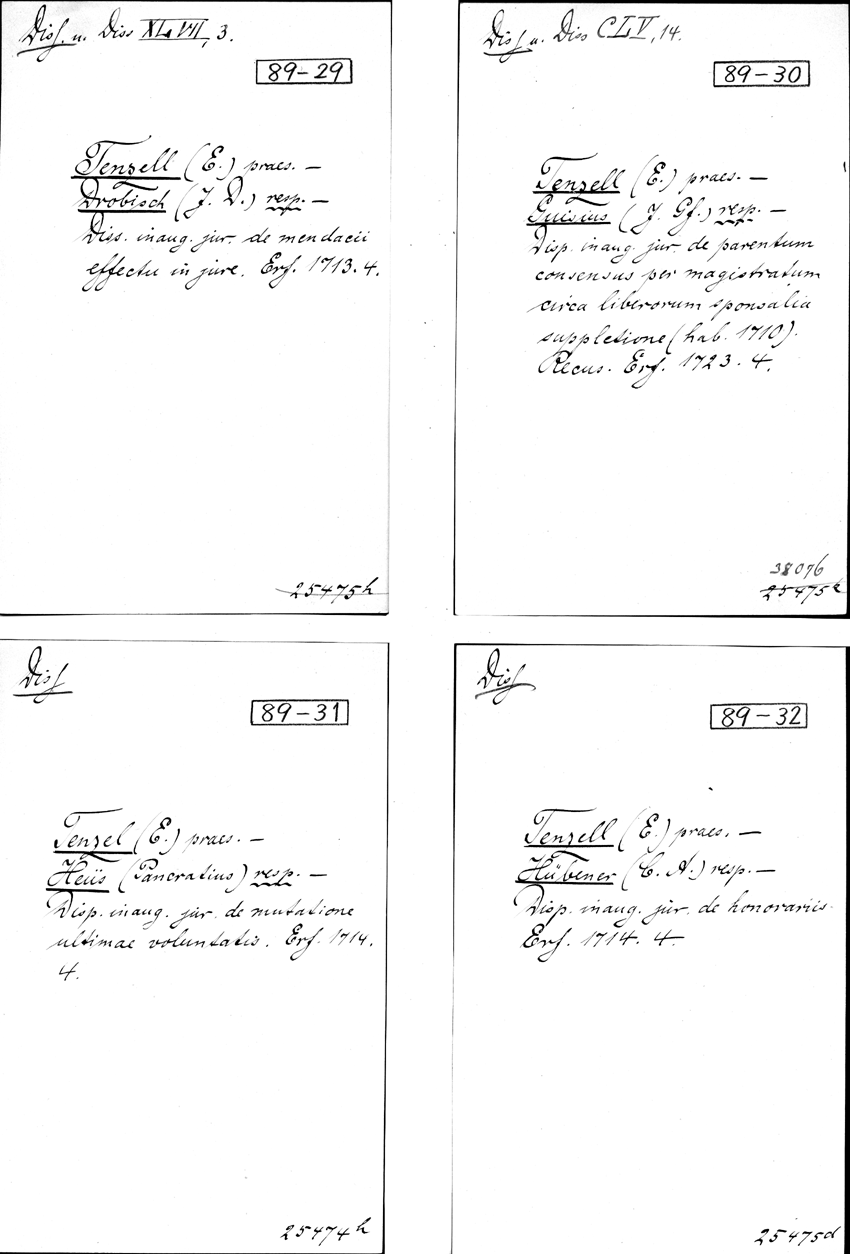 Diss. u. Diss XLVII, 3.
89-29
Tenzell (E.) praes. —
Drobisch (J. D.) resp. —
Diss. inaug. jur. de mendacii
effectu in jure. Erf. 1713. 4.
25475h
Diss u. Diss CLV, 14.
89-30
Tenzell (E.) praes. —
Guisius (J. Gf.) resp. —
Disp. inaug. jur. de parentum
consensus per magistratum
circa liberorum sponsalia
suppletione (hab. 1710).
Recus. Erf. 1723. 4.
38076
25475e
Diss
89-31
Tenzel (E.) praes. —
Heüs (Pancratius) resp. —
Disp. inaug. jur. de mutatione
ultimae voluntatis. Erf. 1714.
4.
25474h
Diss
89-32
Tenzell (E.) praes. —
Hübener (C. A.) resp. —
Disp. inaug. jur. de honorariis.
Erf. 1714. 4.
25475d